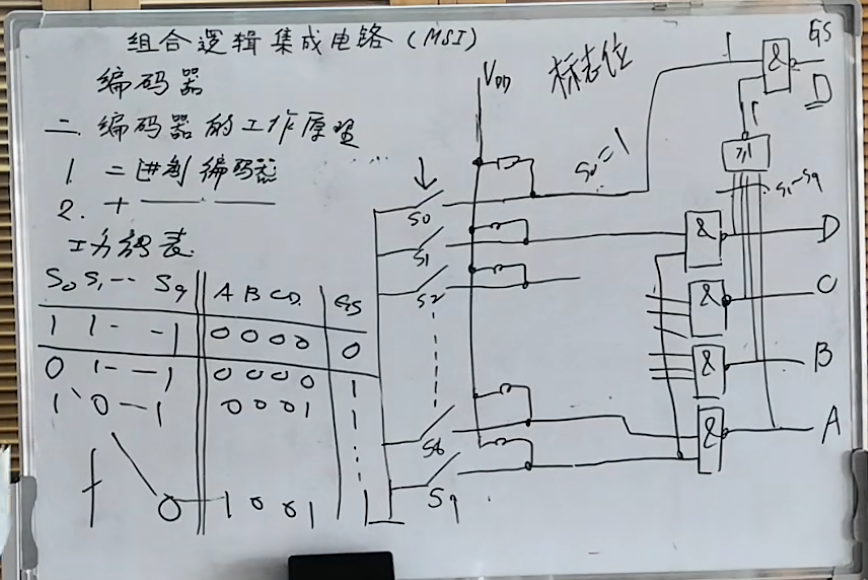 组合逻辑集成电路(MSI)
编码器
二.编码器的工作原理
1. 二进制编码器
2. 十
功能表
S0 S1 -- S9 A B C D. GS
1 1 - - 1 0 0 0 0 0
0 1 - - 1 0 0 0 0 1
1 0 - 1 0 0 0 1
0 1 0 0 1 1
VDD
标志位
S0=1
S0
S1
S2
S8
S9
1
&
GS
D
1
≥1
S1~S9
&
D
&
C
&
B
&
A